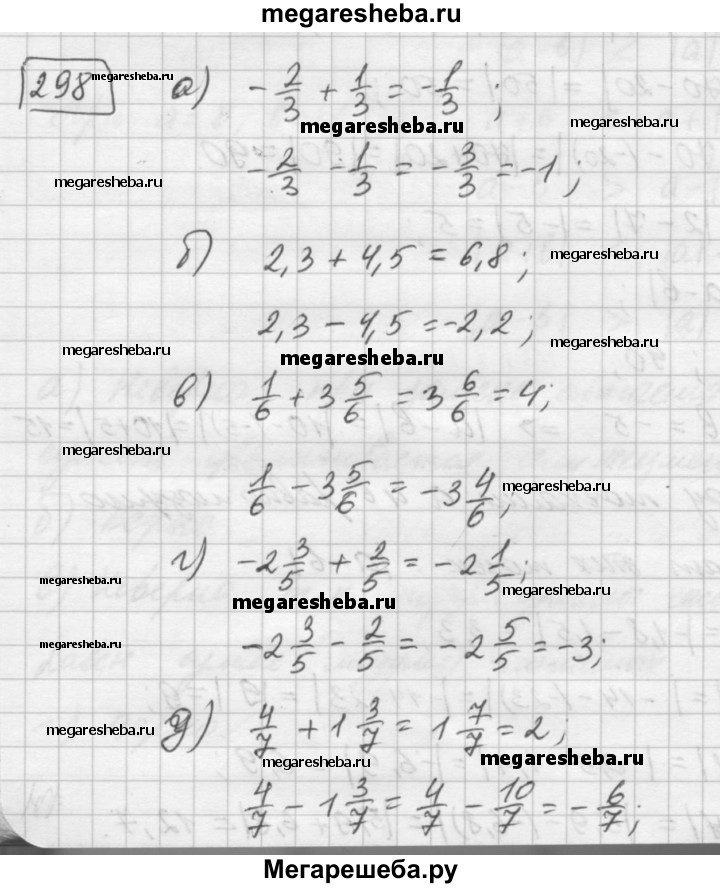 megaresheba.ru
298 megaresheba.ru а) -2/3 + 1/3 = -1/3 ;
megaresheba.ru megaresheba.ru
-2/3 - 1/3 = -3/3 = -1 ;
megaresheba.ru
б) 2,3 + 4,5 = 6,8 ; megaresheba.ru
2,3 - 4,5 = -2,2 ; megaresheba.ru
megaresheba.ru megaresheba.ru
в) 1/6 + 3 5/6 = 3 6/6 = 4;
megaresheba.ru
1/6 - 3 5/6 = -3 4/6 ; megaresheba.ru
г) -2 3/5 + 2/5 = -2 1/5 ;
megaresheba.ru megaresheba.ru megaresheba.ru
-2 3/5 - 2/5 = -2 5/5 = -3;
megaresheba.ru
д) 4/7 + 1 3/7 = 1 7/7 = 2 ;
megaresheba.ru megaresheba.ru megaresheba.ru
4/7 - 1 3/7 = 4/7 - 10/7 = -6/7 ;
megaresheba.ru
Мегарешеба.ру